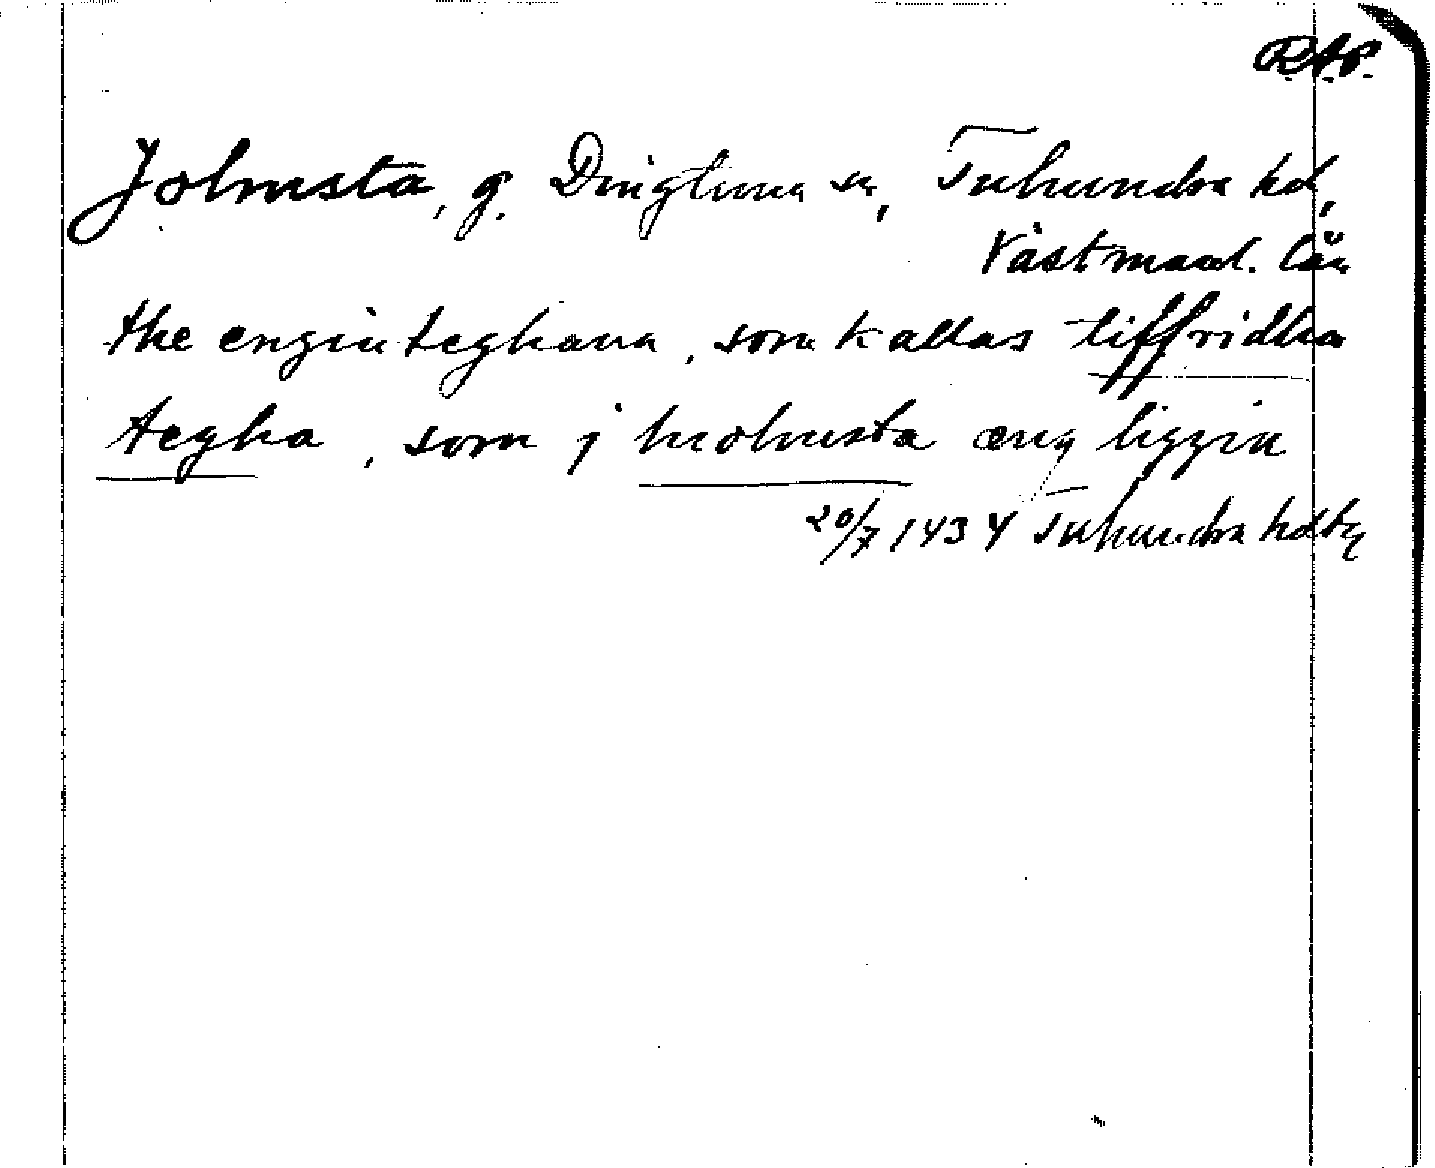 RAP.
Jolmsta, g. Dingtuna sn, Tuhundra hd,
Västmanl. län
the engiæ teghana, som kallas tiffridha
tegha, som j hiolmsta æng liggia
20/7 1434 Tuhundra hdtg